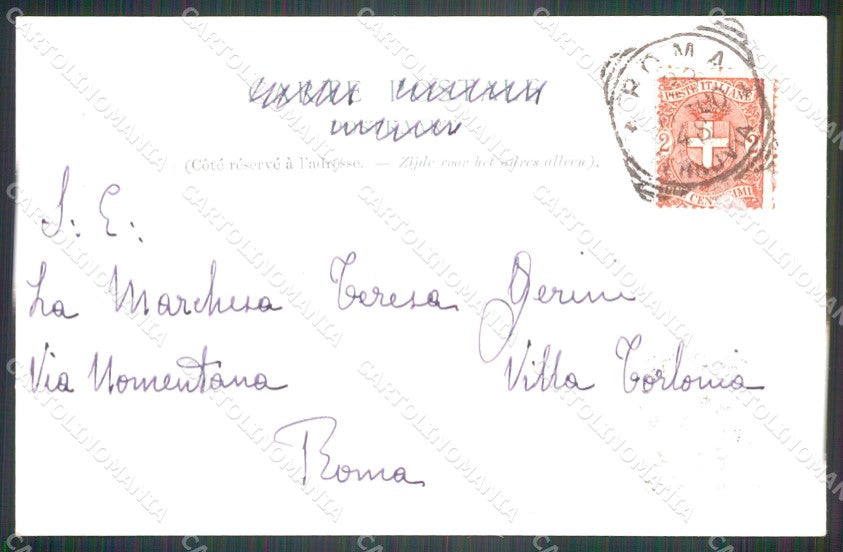 CARTE POSTALE
(Côté réservé à l'adresse. — Zijde voor het adres alleen).
ROMA
POSTE ITALIANE
2 2
CENTESIMI
S: E:
La Marchesa Teresa Gerini
Via Nomentana Villa Torlonia
Roma
CARTOLINOMANIA